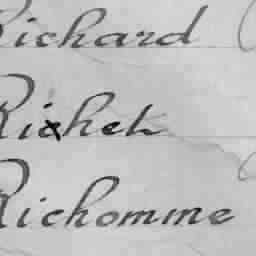 Richard
Richet
Richomme